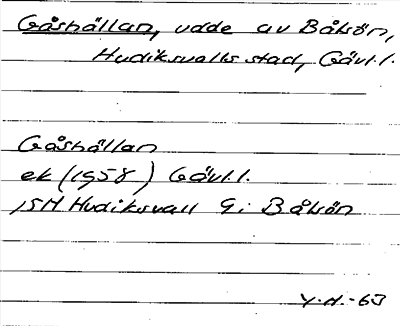 Gåshällan, udde av Båkön,
Hudiksvalls stad, Gävl.l.
Gåshällan
ek (1958) Gävl.l.
15H Hudiksvall 9i Båkön
Y.H.-63